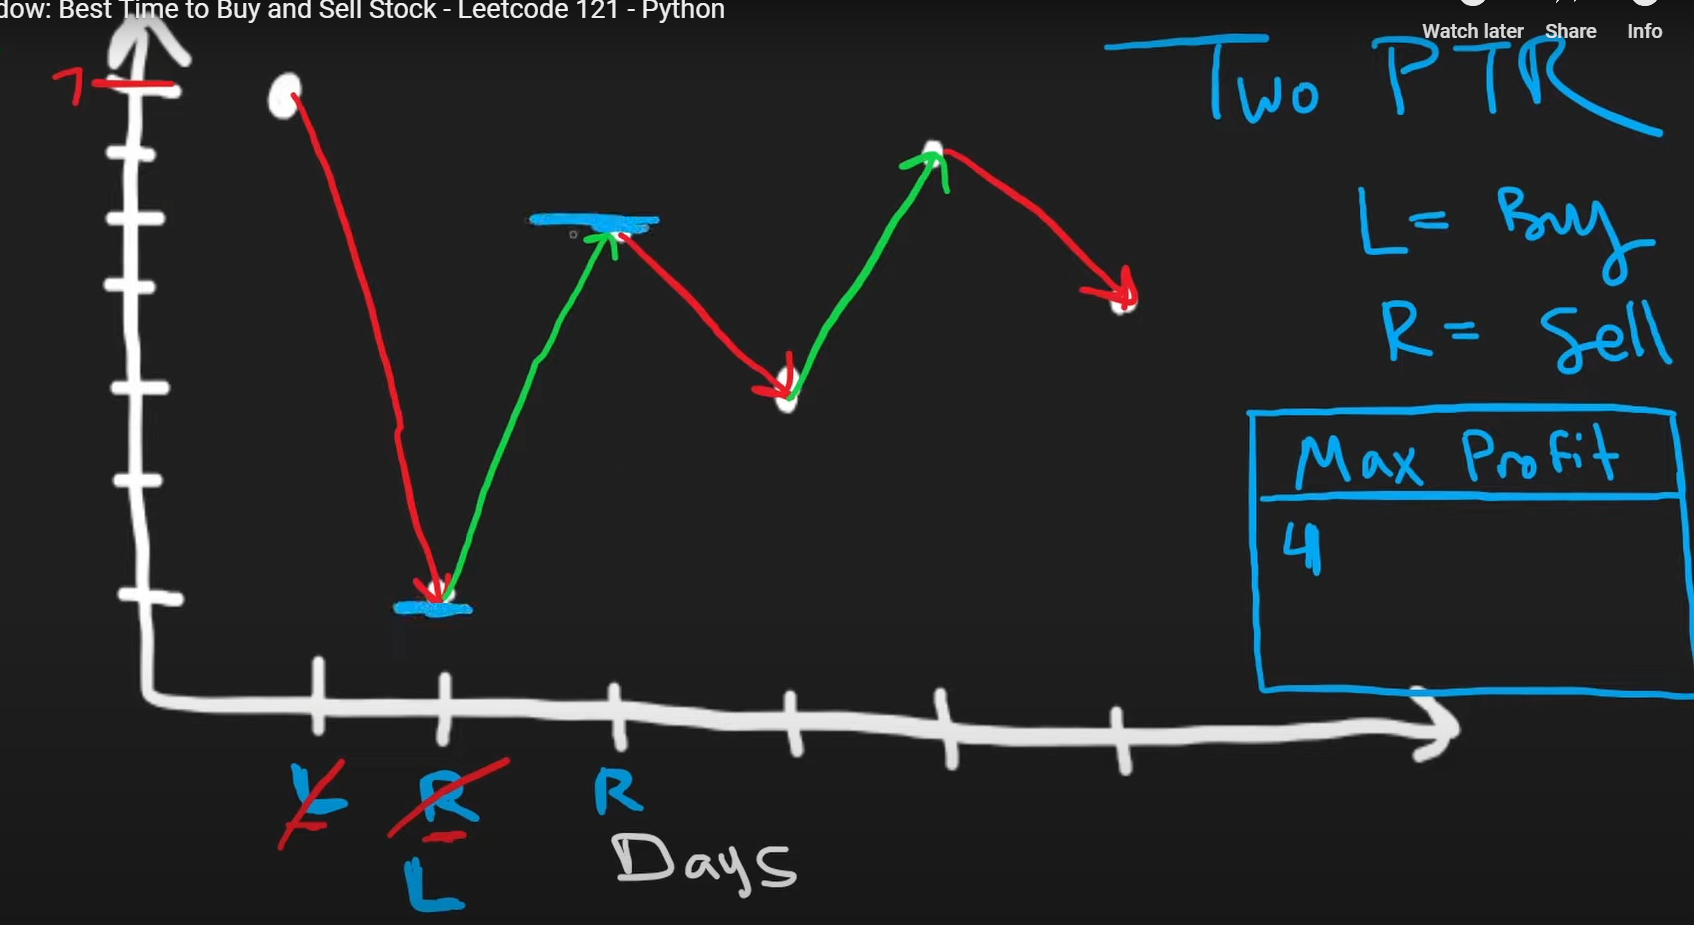 dow: Best Time to Buy and Sell Stock - Leetcode 121 - Python
Watch later Share Info
7
Two PTR
L = Buy
R = Sell
Max Profit
4
L R R
L
Days